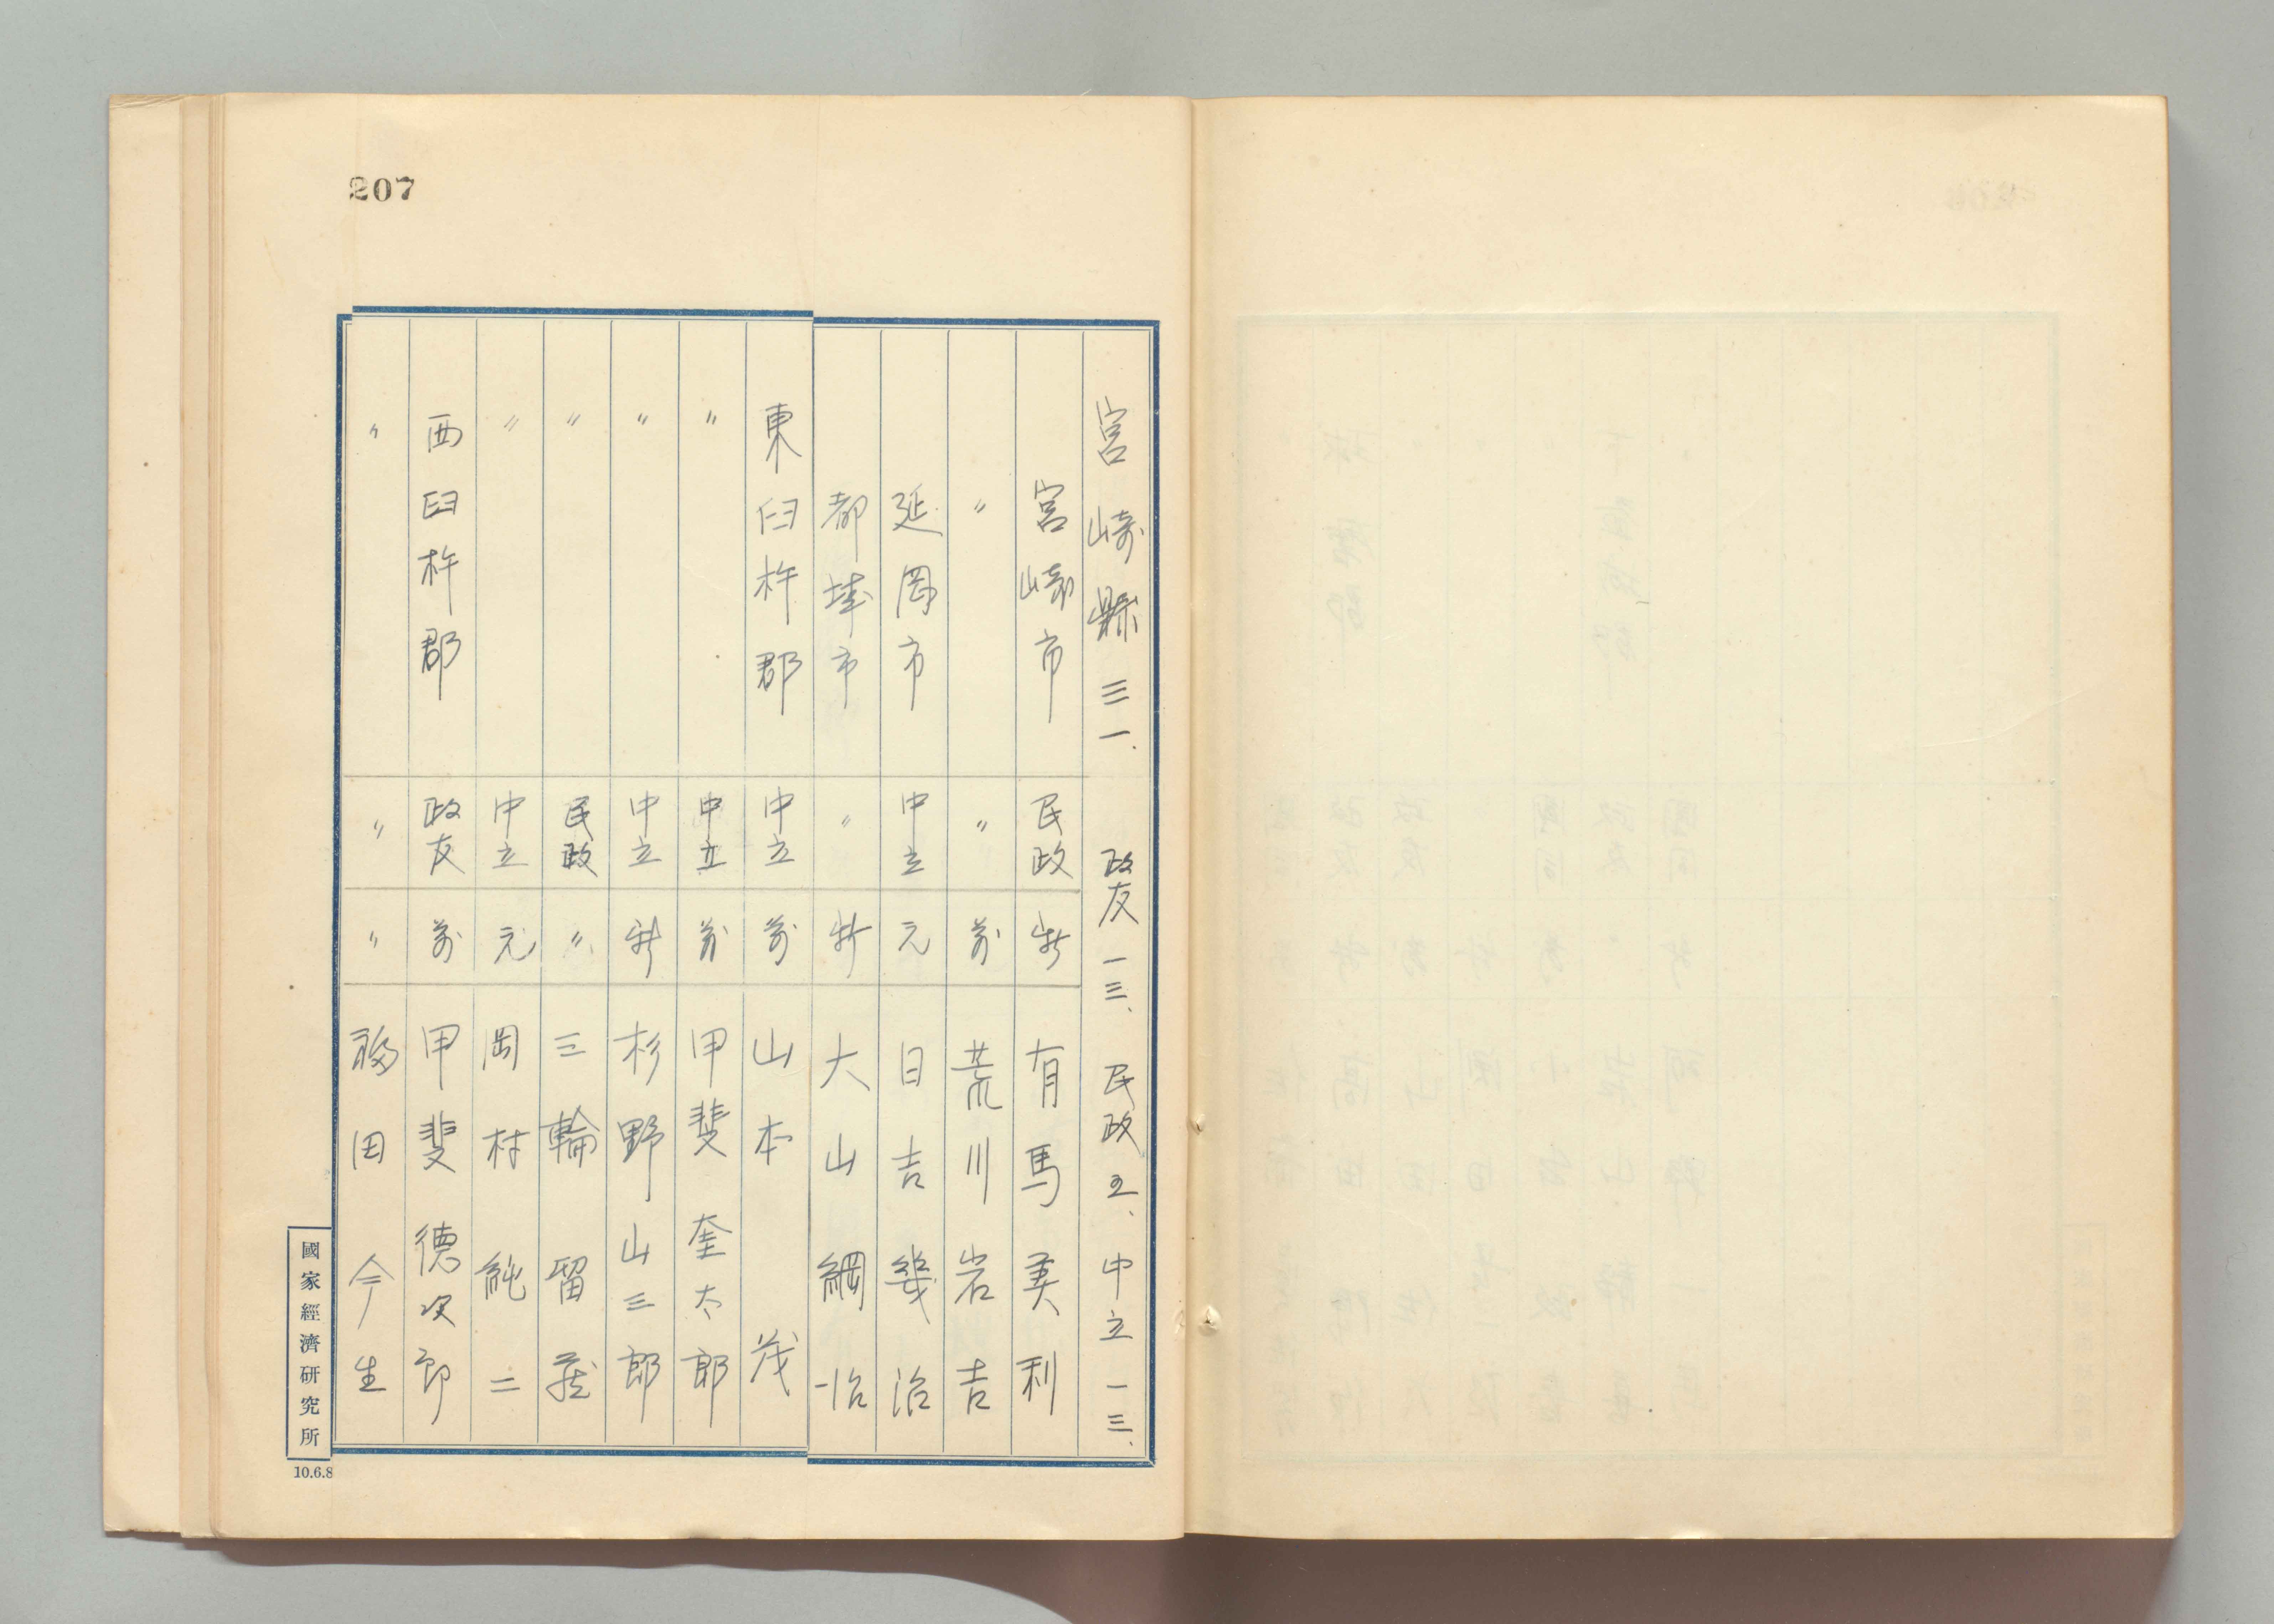 207
宮崎縣 三一、 政友 一三、 民政 五、 中立 一三、
宮崎市 民政 新 有馬美利
〃 〃 前 荒川岩吉
延岡市 中立 元 日吉幾治
都城市 〃 新 大山綱治
東臼杵郡 中立 前 山本茂
〃 中立 前 甲斐奎太郎
〃 中立 新 杉野山三郎
〃 民政 〃 三輪留蔵
〃 中立 元 岡村純二
西臼杵郡 政友 前 甲斐德次郎
〃 〃 〃 福田今生
國家經濟硏究所
10.6.8